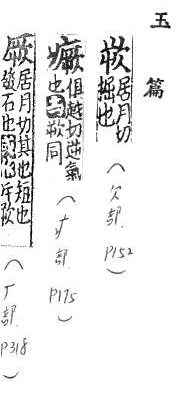 玉篇
欮居月切
掘也
(欠部 P152)
瘚俱越切逆氣
也與欮同
(疒部 P175)
厥居月切其也短也
發石也
(厂部 P318)